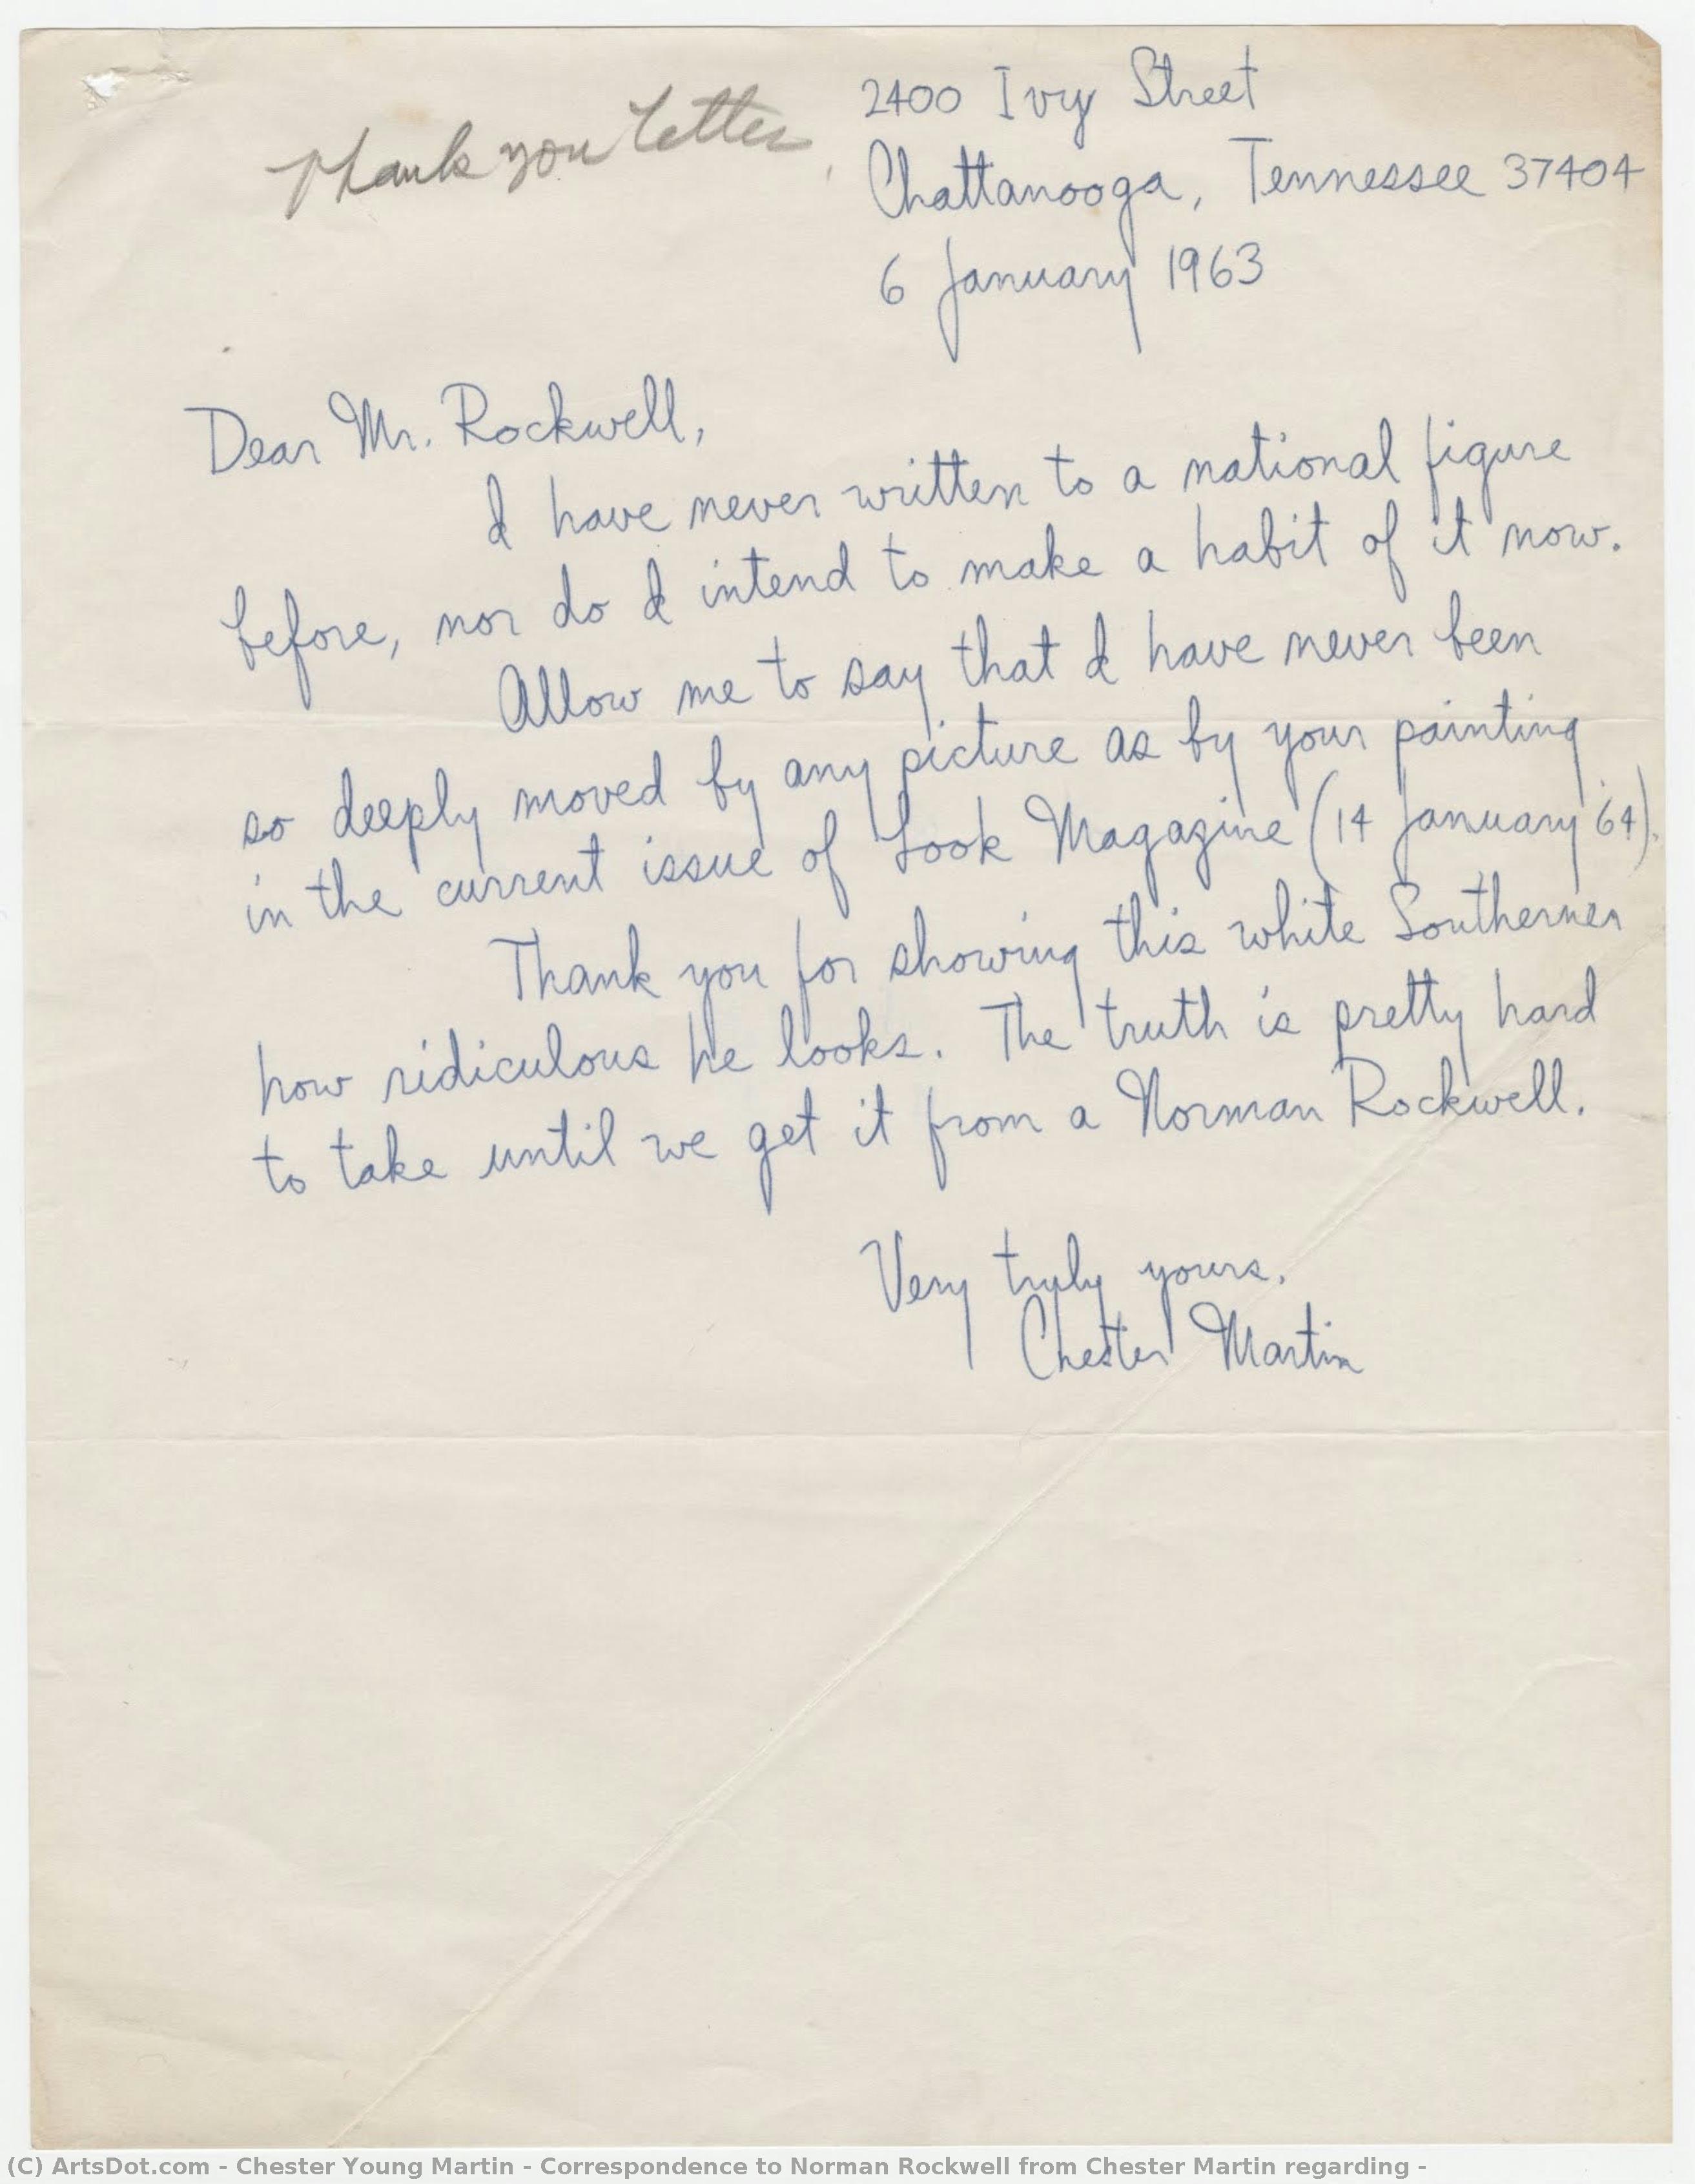 Thank you letter
2400 Ivy Street
Chattanooga, Tennessee 37404
6 January 1963
Dear Mr. Rockwell,
I have never written to a national figure
before, nor do I intend to make a habit of it now.
Allow me to say that I have never been
so deeply moved by any picture as by your painting
in the current issue of Look Magazine (14 January '64).
Thank you for showing this white Southerner
how ridiculous he looks. The truth is pretty hard
to take until we get it from a Norman Rockwell.
Very truly yours,
Chester Martin
(C) ArtsDot.com - Chester Young Martin - Correspondence to Norman Rockwell from Chester Martin regarding -